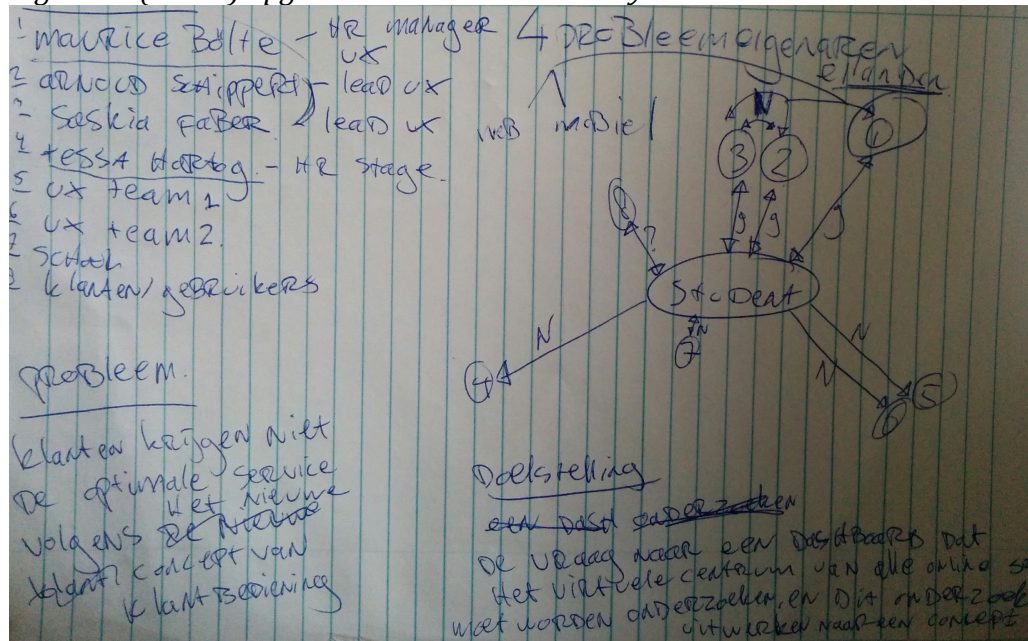 1 maurice Bolte - HR manager UX
2 arnoud schippert - lead ux
3 Saskia Faber - lead ux
4 tessa Hartog - HR Stage.
5 ux team 1
6 ux team 2
7 School
8 klanten/gebruikers
4 probleemeigenaren
web mobiel
eilanden
N
3
2
1
8
?
g
g
g
Student
N
N
7
4
N
N
5
6
probleem.
klanten krijgen niet
de optimale service
volgens de nieuwe het nieuwe
klant concept van
klantbediening
Doelstelling
een dash onderzoeken
De vraag naar een Dashboard dat
Het virtuele centrum van alle online
moet worden onderzoeken, en dit onderzoek
uitwerken naar een concept